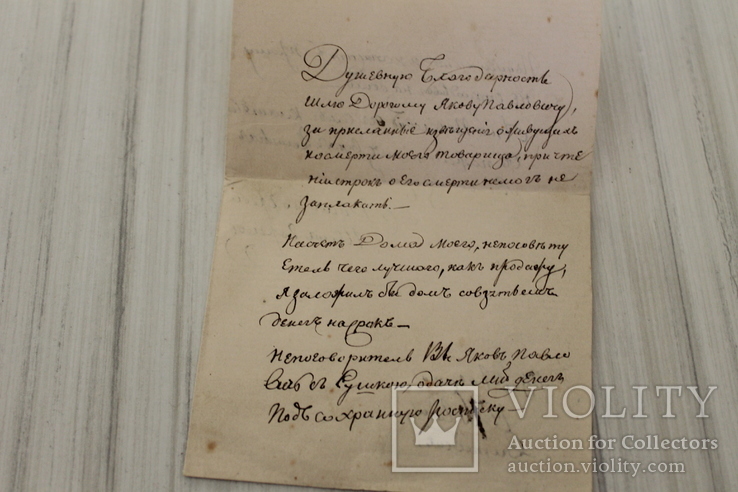 Душевную Благодарность
шлю Дорогому Якову Павловичу,
за присланные извещения о живущихъ
по смерти моего товарища, при чте
нии строкъ о его смерти немогъ не
заплакать. —
Насчетъ Дома моего, непосовѣту
етель чего лучшаго, какъ продажу,
я заложилъ бы домъ со взятьемъ
денегъ на срокъ —
Непоговорителъ Вы Яковъ Павло
вичъ съ Сушкою, о дачѣ мнѣ денегъ
Подъ сохранную росписку
VIOLITY
Auction for Collectors
auction.violity.com